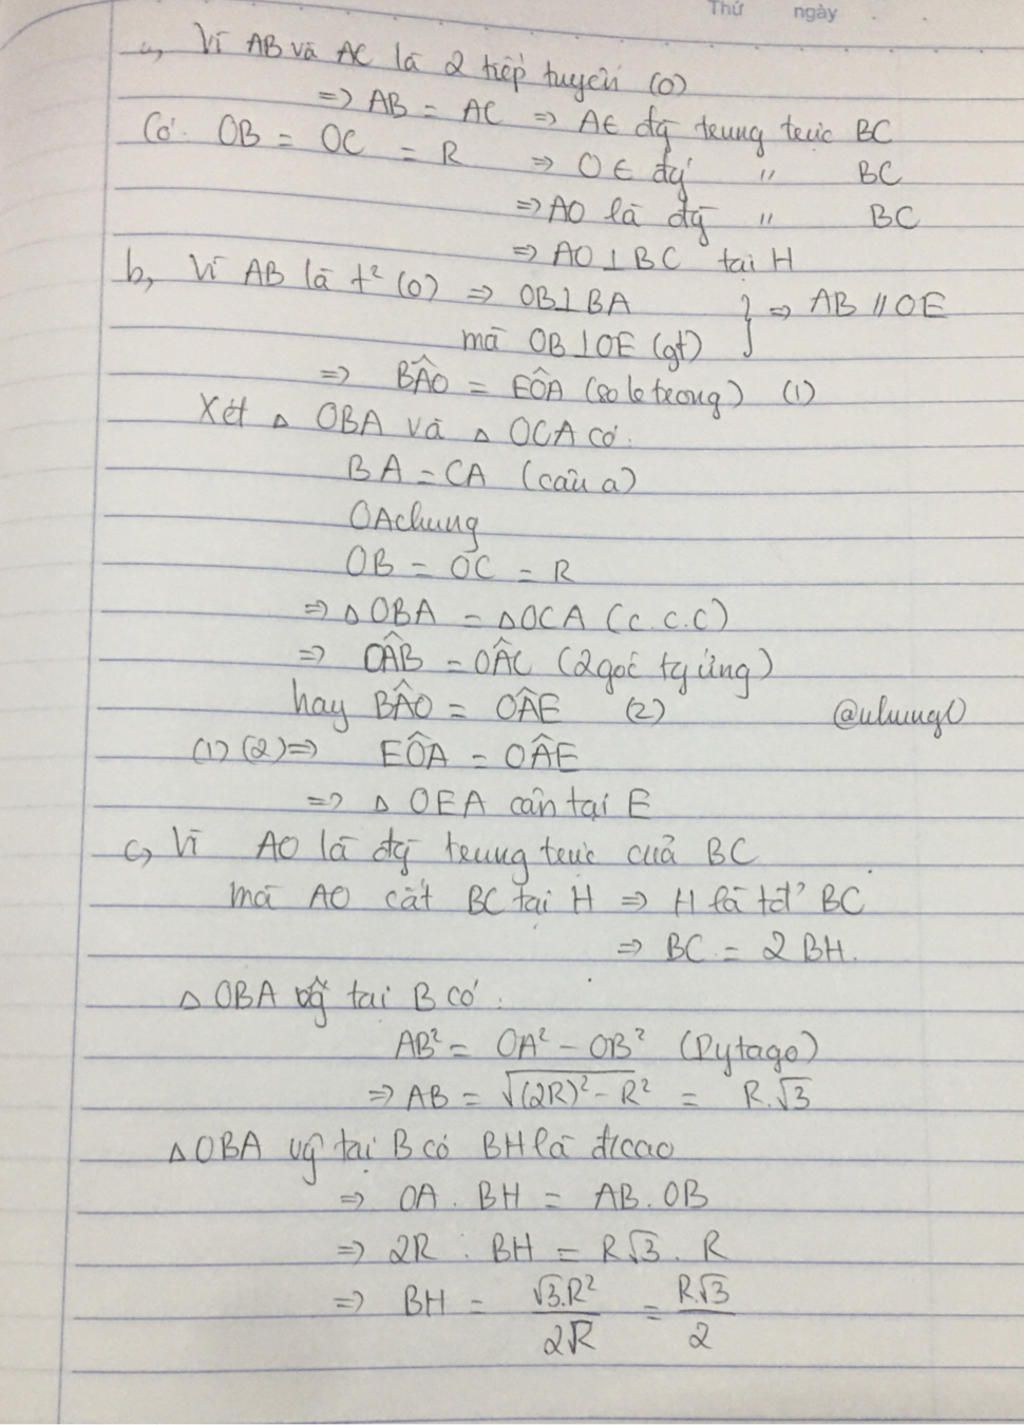 Thứ ngày
a, Vì AB và AC là 2 tiếp tuyến (O)
=> AB = AC => A∈ đg trung trực BC
Có: OB = OC = R => O∈ đg " BC
=> AO là đg " BC
=> AO⊥BC tại H
b, Vì AB là t² (O) => OB⊥BA
mà OB⊥OE (gt) } => AB // OE
=> BÂO = EÔA (so le trong) (1)
Xét △ OBA và △ OCA có:
BA = CA (câu a)
OA chung
OB = OC = R
=> △OBA = △OCA (c.c.c)
=> OÂB = OÂC (2 góc tg ứng)
hay BÂO = OÂE (2)
@ulwingU
(1)(2) => EÔA = OÂE
=> △ OEA cân tại E
c, Vì AO là đg trung trực của BC
mà AO cắt BC tại H => H là tđ' BC
=> BC = 2 BH.
△ OBA vg tại B có:
AB² = OA² - OB² (Pytago)
=> AB = √(2R)² - R² = R.√3
△OBA vg tại B có BH là đ/cao
=> OA . BH = AB. OB
=> 2R . BH = R√3 . R
=> BH = √3.R²/2R = R.√3/2